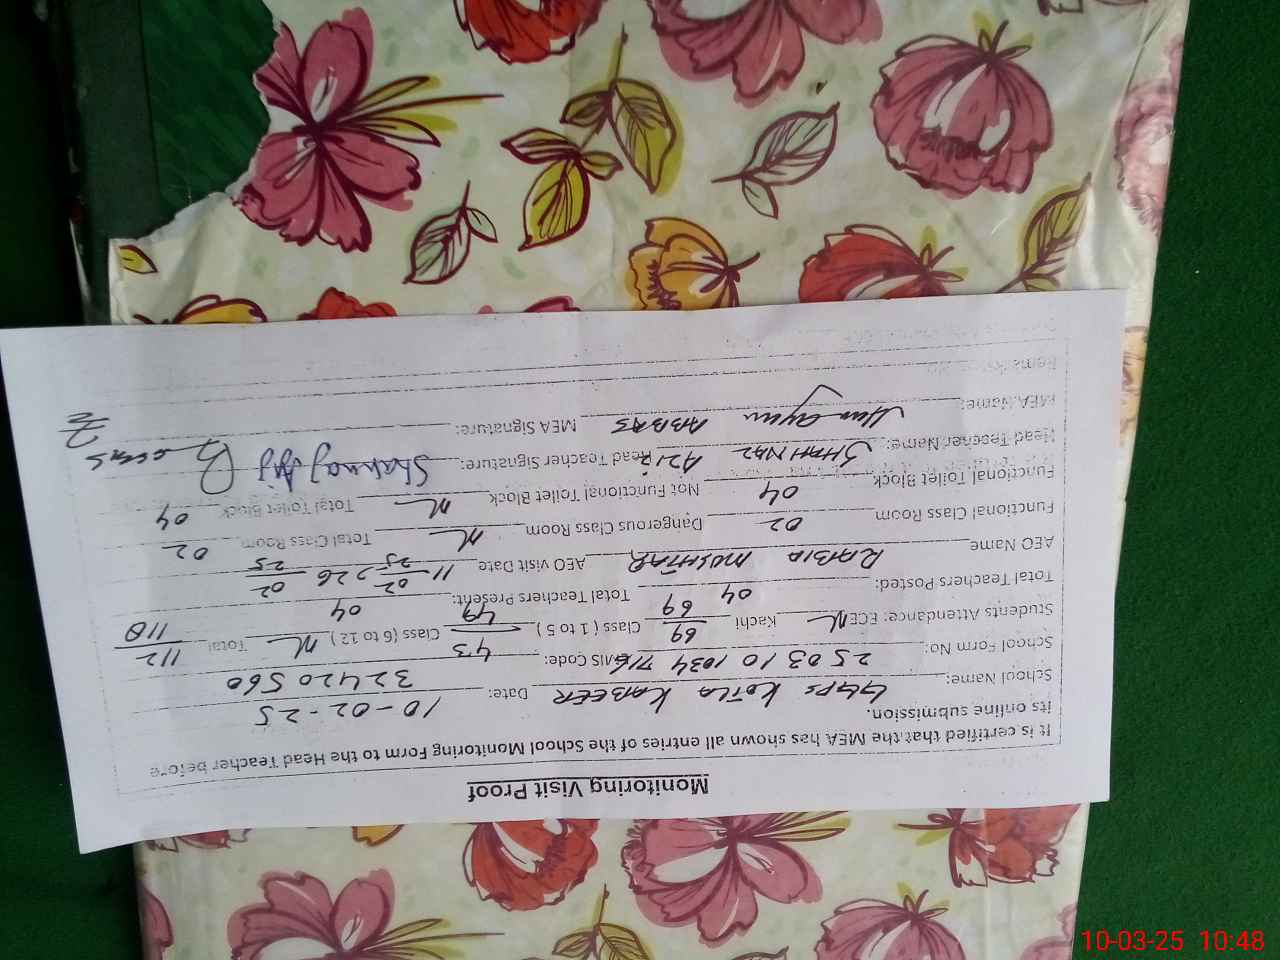 Monitoring Visit Proof
It is certified that the MEA has shown all entries of the School Monitoring Form to the Head Teacher before
its online submission.
School Name: GGPS KOTLA KABEER Date: 10-02-25
School Form No: 2503101034 EMIS Code: 32420560
Students Attendance: ECE N Kachi 69/69 Class (1 to 5) 43/49 Class (6 to 12) N Total 112/118
Total Teachers Posted: 04 Total Teachers Present: 04
AEO Name RABIA MUSHTAQ AEO visit Date 11-02-25 26-02-25
Functional Class Room 02 Dangerous Class Room N Total Class Room 02
Functional Toilet Block 04 Not Functional Toilet Block N Total Toilet Block 04
Head Teacher Name: SHAHNAZ AZIZ Head Teacher Signature: Shahnaz Aziz
MEA Name: Humayun ABBAS MEA Signature:
Remarks
10-03-25 10:48